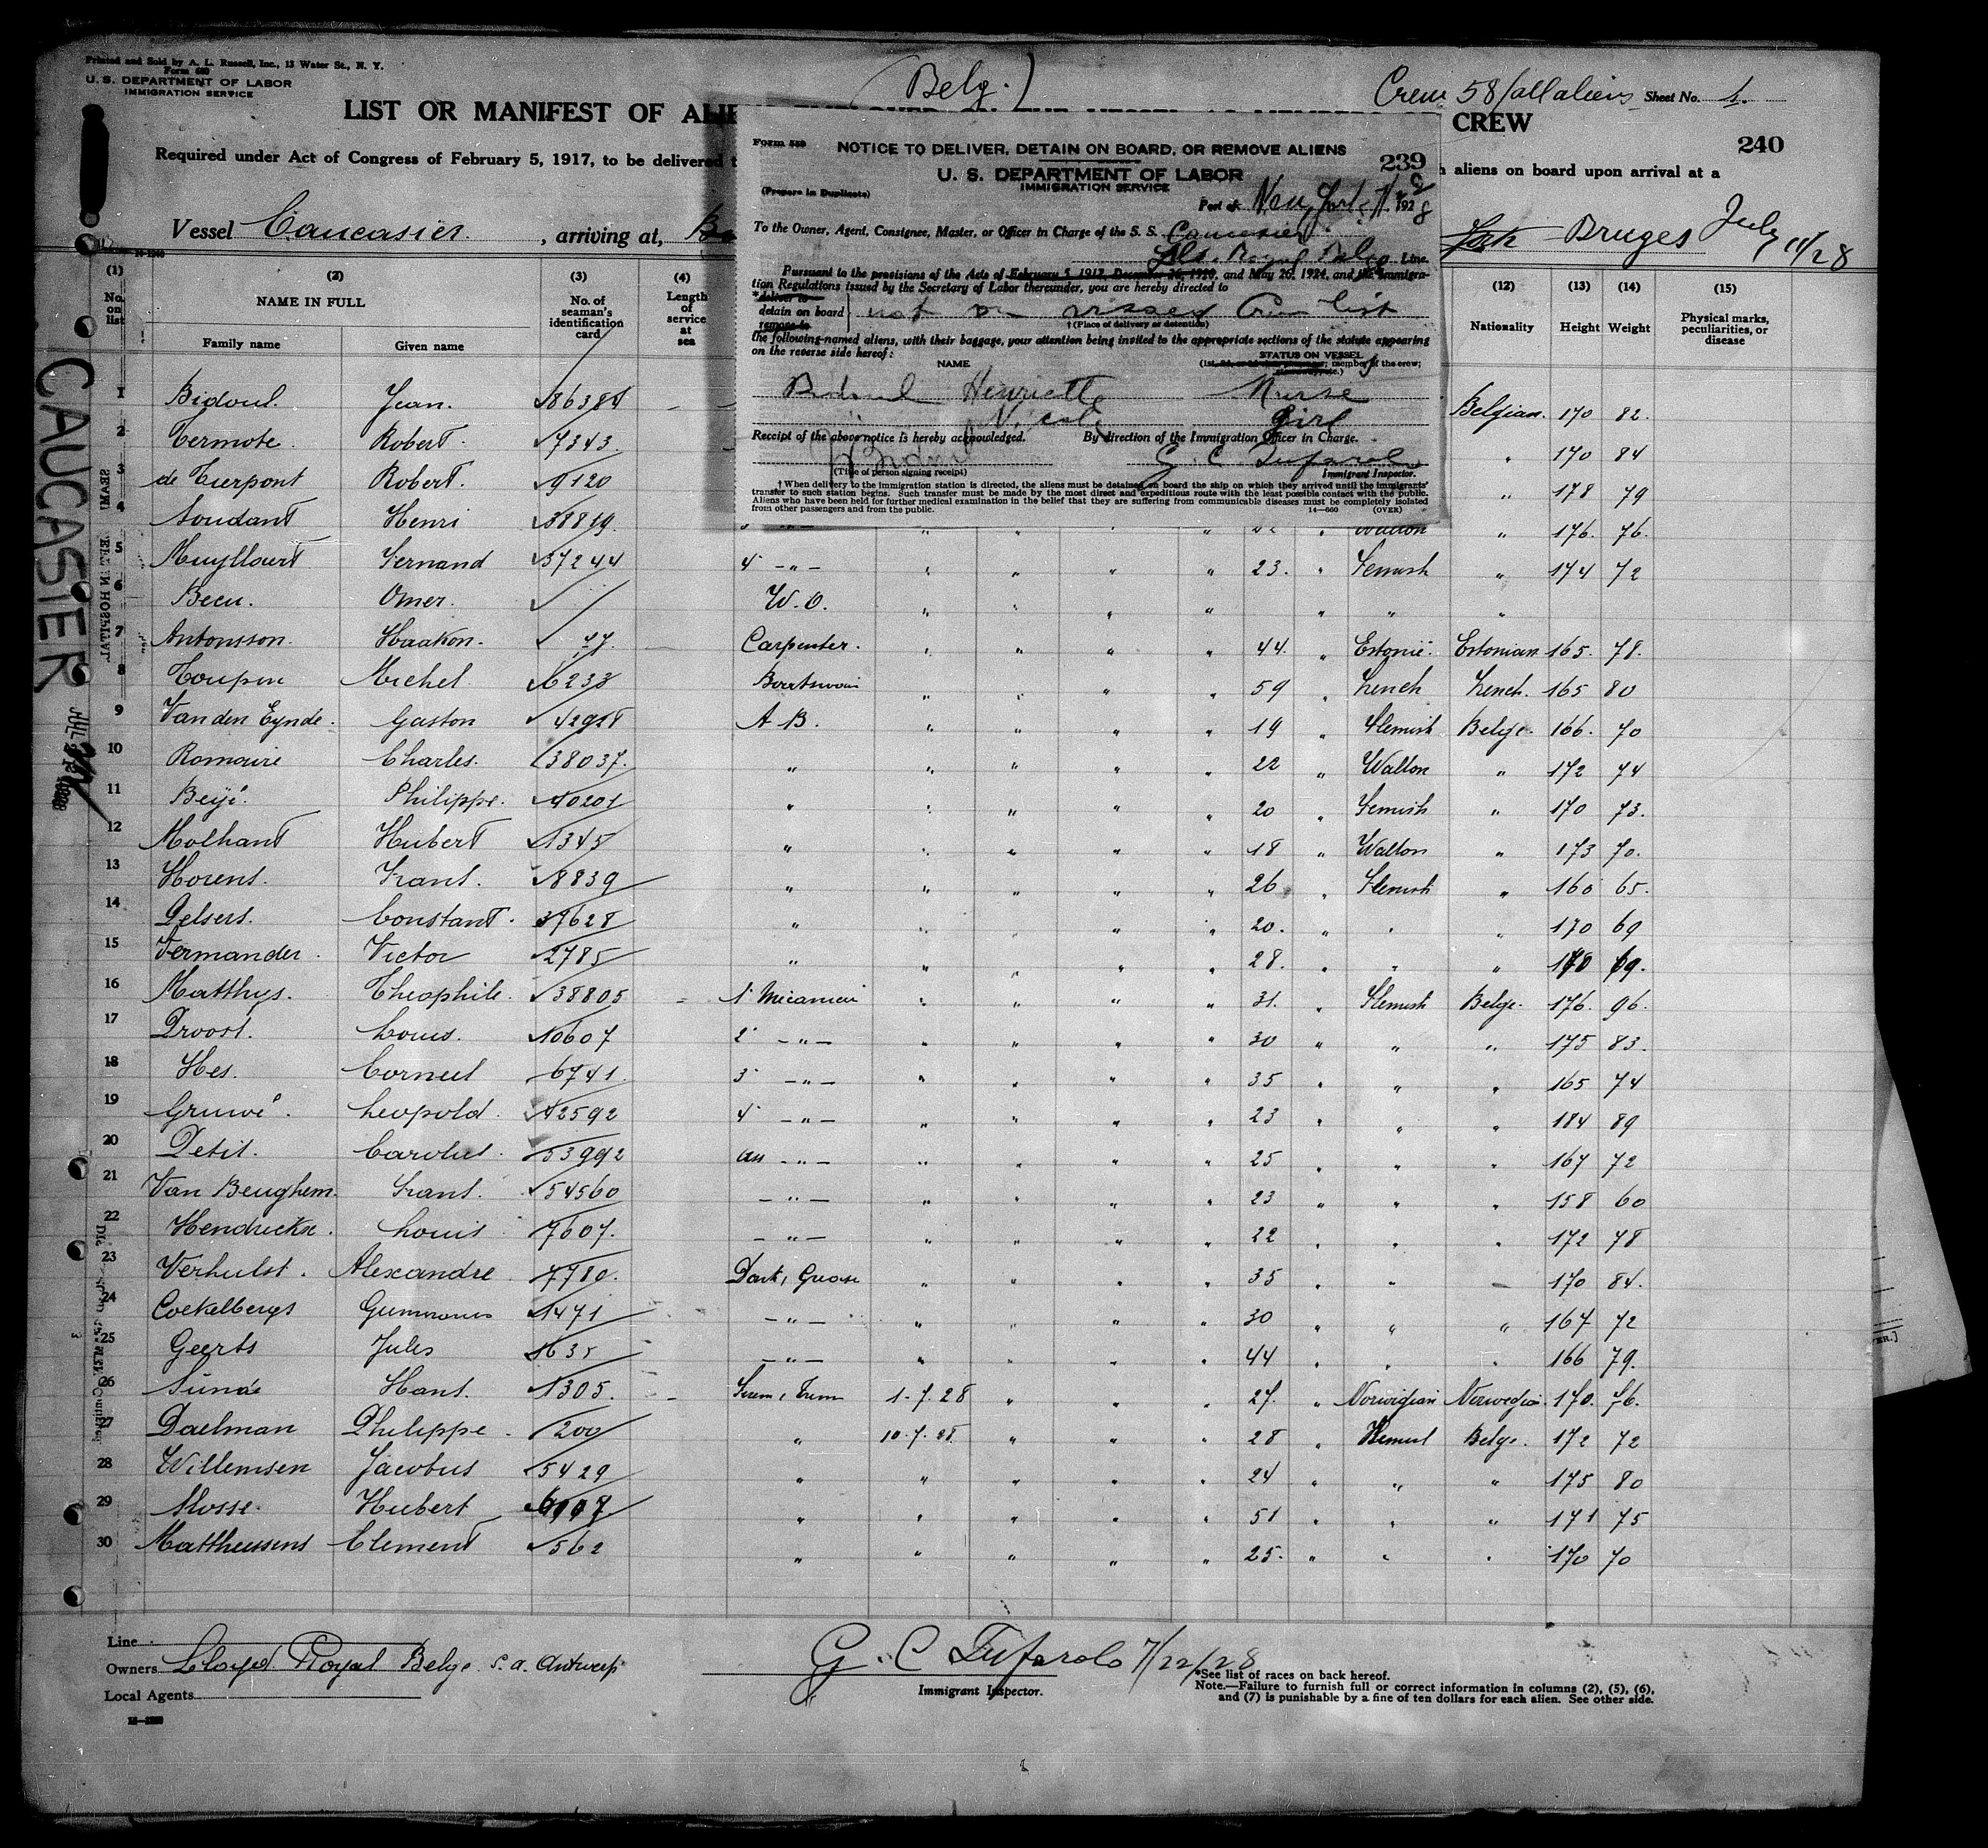 Printed and Sold by A. L. Russell, Inc., 13 Water St., N. Y.
Form 680
U. S. DEPARTMENT OF LABOR
IMMIGRATION SERVICE
(Belg.)
Crew 58/all aliens Sheet No. 1.
LIST OR MANIFEST OF ALIE CREW
240
Required under Act of Congress of February 5, 1917, to be delivered t aliens on board upon arrival at a
Vessel Caucasier, arriving at, Bruges July 11/28
Form 689
NOTICE TO DELIVER, DETAIN ON BOARD, OR REMOVE ALIENS
239
U. S. DEPARTMENT OF LABOR
IMMIGRATION SERVICE
(Prepare in Duplicate)
Port of New York, 192 8
To the Owner, Agent, Consignee, Master, or Officer in Charge of the S. S. Caucasier
Royal Belge Line.
Pursuant to the provisions of the Acts of February 5, 1917, December 26, 1920, and May 26, 1924, and the Immigra-
tion Regulations issued by the Secretary of Labor thereunder, you are hereby directed to
*deliver to
detain on board not on vissed Crew list
remove to
†(Place of delivery or detention)
the following-named aliens, with their baggage, your attention being invited to the appropriate sections of the statute appearing
on the reverse side hereof:
STATUS ON VESSEL
NAME
member of the crew;
Bidoul Henriette Nurse
Nicole Girl
Receipt of the above notice is hereby acknowledged. By direction of the Immigration Officer in Charge.
J Bidoul G. C. Tufarolo
(Title of person signing receipt) Immigrant Inspector.
†When delivery to the immigration station is directed, the aliens must be detained on board the ship on which they arrived until the immigrants'
transfer to such station begins. Such transfer must be made by the most direct and expeditious route with the least possible contact with the public.
Aliens who have been held for further medical examination in the belief that they are suffering from communicable diseases must be completely isolated
from other passengers and from the public. 14—660 (OVER)
(1) (2) (3) (4) (12) (13) (14) (15)
No. on list NAME IN FULL No. of seaman's identification card Length of service at sea Nationality Height Weight Physical marks, peculiarities, or disease
Family name Given name
CAUCASIER
1 Bidoul. Jean. 86384 Belgian. 170 82.
2 Termote. Robert. 7343. " 170 84
3 de Tierpont Robert. 9120 " 178 79
4 Soudant Henri 38819. Wallon " 176. 76.
5 Muyllaert Fernand 37244 4 -"- " " " " 23. " Flemish " 174 72
6 Becu. Omer. W. O. " " " " " " "
7 Antonsson. Haakon. 47. Carpenter. " " " " 44. " Estonie. Estonian 165. 78.
8 Toupin Michel 6233 Boatswain " " " " 59 " French French. 165 80
9 Van den Eynde. Gaston 42958 A B. " " " " 19 " Flemish Belge. 166. 70
10 Romaire Charles. 38037. " " " " " 22 " Wallon " 172 74
11 Beyé. Philippe. 40201 " " " " " 20 " Flemish " 170 73.
12 Molhant Hubert 1345 " " " " " 18 " Wallon " 173 70.
13 Horent. Frans. 8839 " " " " " 26 " Flemish " 160 65.
14 Gelsers. Constant. 37628 " " " " " 20. " " " 170 69
15 Vermander. Victor 2785 " " " " " 28. " " " 170 69.
16 Matthys. Theophile. 38805 1 Mecanicien " " " " 31. " Flemish Belge. 176. 96.
17 Droost. Louis. 10607 2 -"- " " " " 30 " " " 175 83.
18 Hes. Corneel 6741. 3 -"- " " " " 35 " " " 165 74
19 Gruwé. Leopold. 42592 4 -"- " " " " 23 " " " 184 89
20 Petit. Carolus. 53992 ass -"- " " " " 25 " " " 167 72
21 Van Beughem. Frans. 54560 -"- " " " " 23 " " " 158 60
22 Hendrickx. Louis 7607. -"- " " " " 22 " " " 172 78
23 Verhulst. Alexandre. 7780. Donk, Grease " " " " 35 " " " 170 84.
24 Coekelbergs Gummarus 1471 -"- " " " " 30 " " " 167 72
25 Geerts Jules 1635 -"- " " " " 44 " " " 166 79.
26 Hans. 1305. 1-7.28 " " " 27. " Norwegian Norwegian. 170. 76.
27 Daelman Philippe. 200 " 10.7.28. " " " 28 " Flemish Belge. 172 72
28 Willemsen Jacobus 5429 " " " " " 24 " " " 175 80
29 Mosse. Hubert " " " " " 51 " " " 171 75
30 Mattheusens Clement 562 " " " " " 25. " " " 170 70
Line
Owners Lloyd Royal Belge. S. A. Antwerp
Local Agents
G. C Tufarolo 7/22/28
Immigrant Inspector.
*See list of races on back hereof.
Note.—Failure to furnish full or correct information in columns (2), (5), (6),
and (7) is punishable by a fine of ten dollars for each alien. See other side.